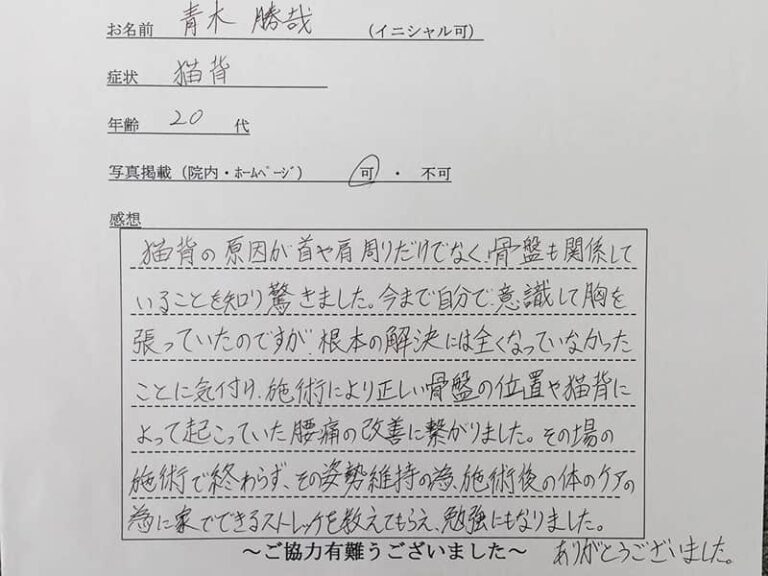 お名前 青木 勝哉 (イニシャル可)
症状 猫背
年齢 20 代
写真掲載 (院内・ホームページ) 可 ・ 不可
感想
猫背の原因が首や肩周りだけでなく、骨盤も関係して
いることを知り驚きました。今まで自分で意識して胸を
張っていたのですが、根本の解決には全くなっていなかった
ことに気付け、施術により正しい骨盤の位置や猫背に
よって起こっていた腰痛の改善に繋がりました。その場の
施術で終わらず、その姿勢維持の為、施術後の体のケアの
為に家でできるストレッチを教えてもらえ、勉強にもなりました。
～ご協力有難うございました～ ありがとうございました。